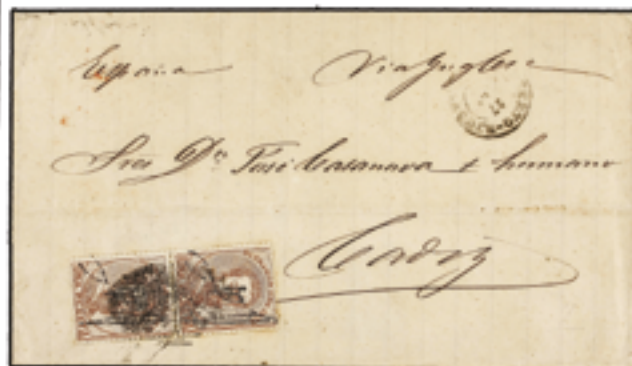 España Via Inglesa
Sres Dn José Casanova & hermano
Cadiz